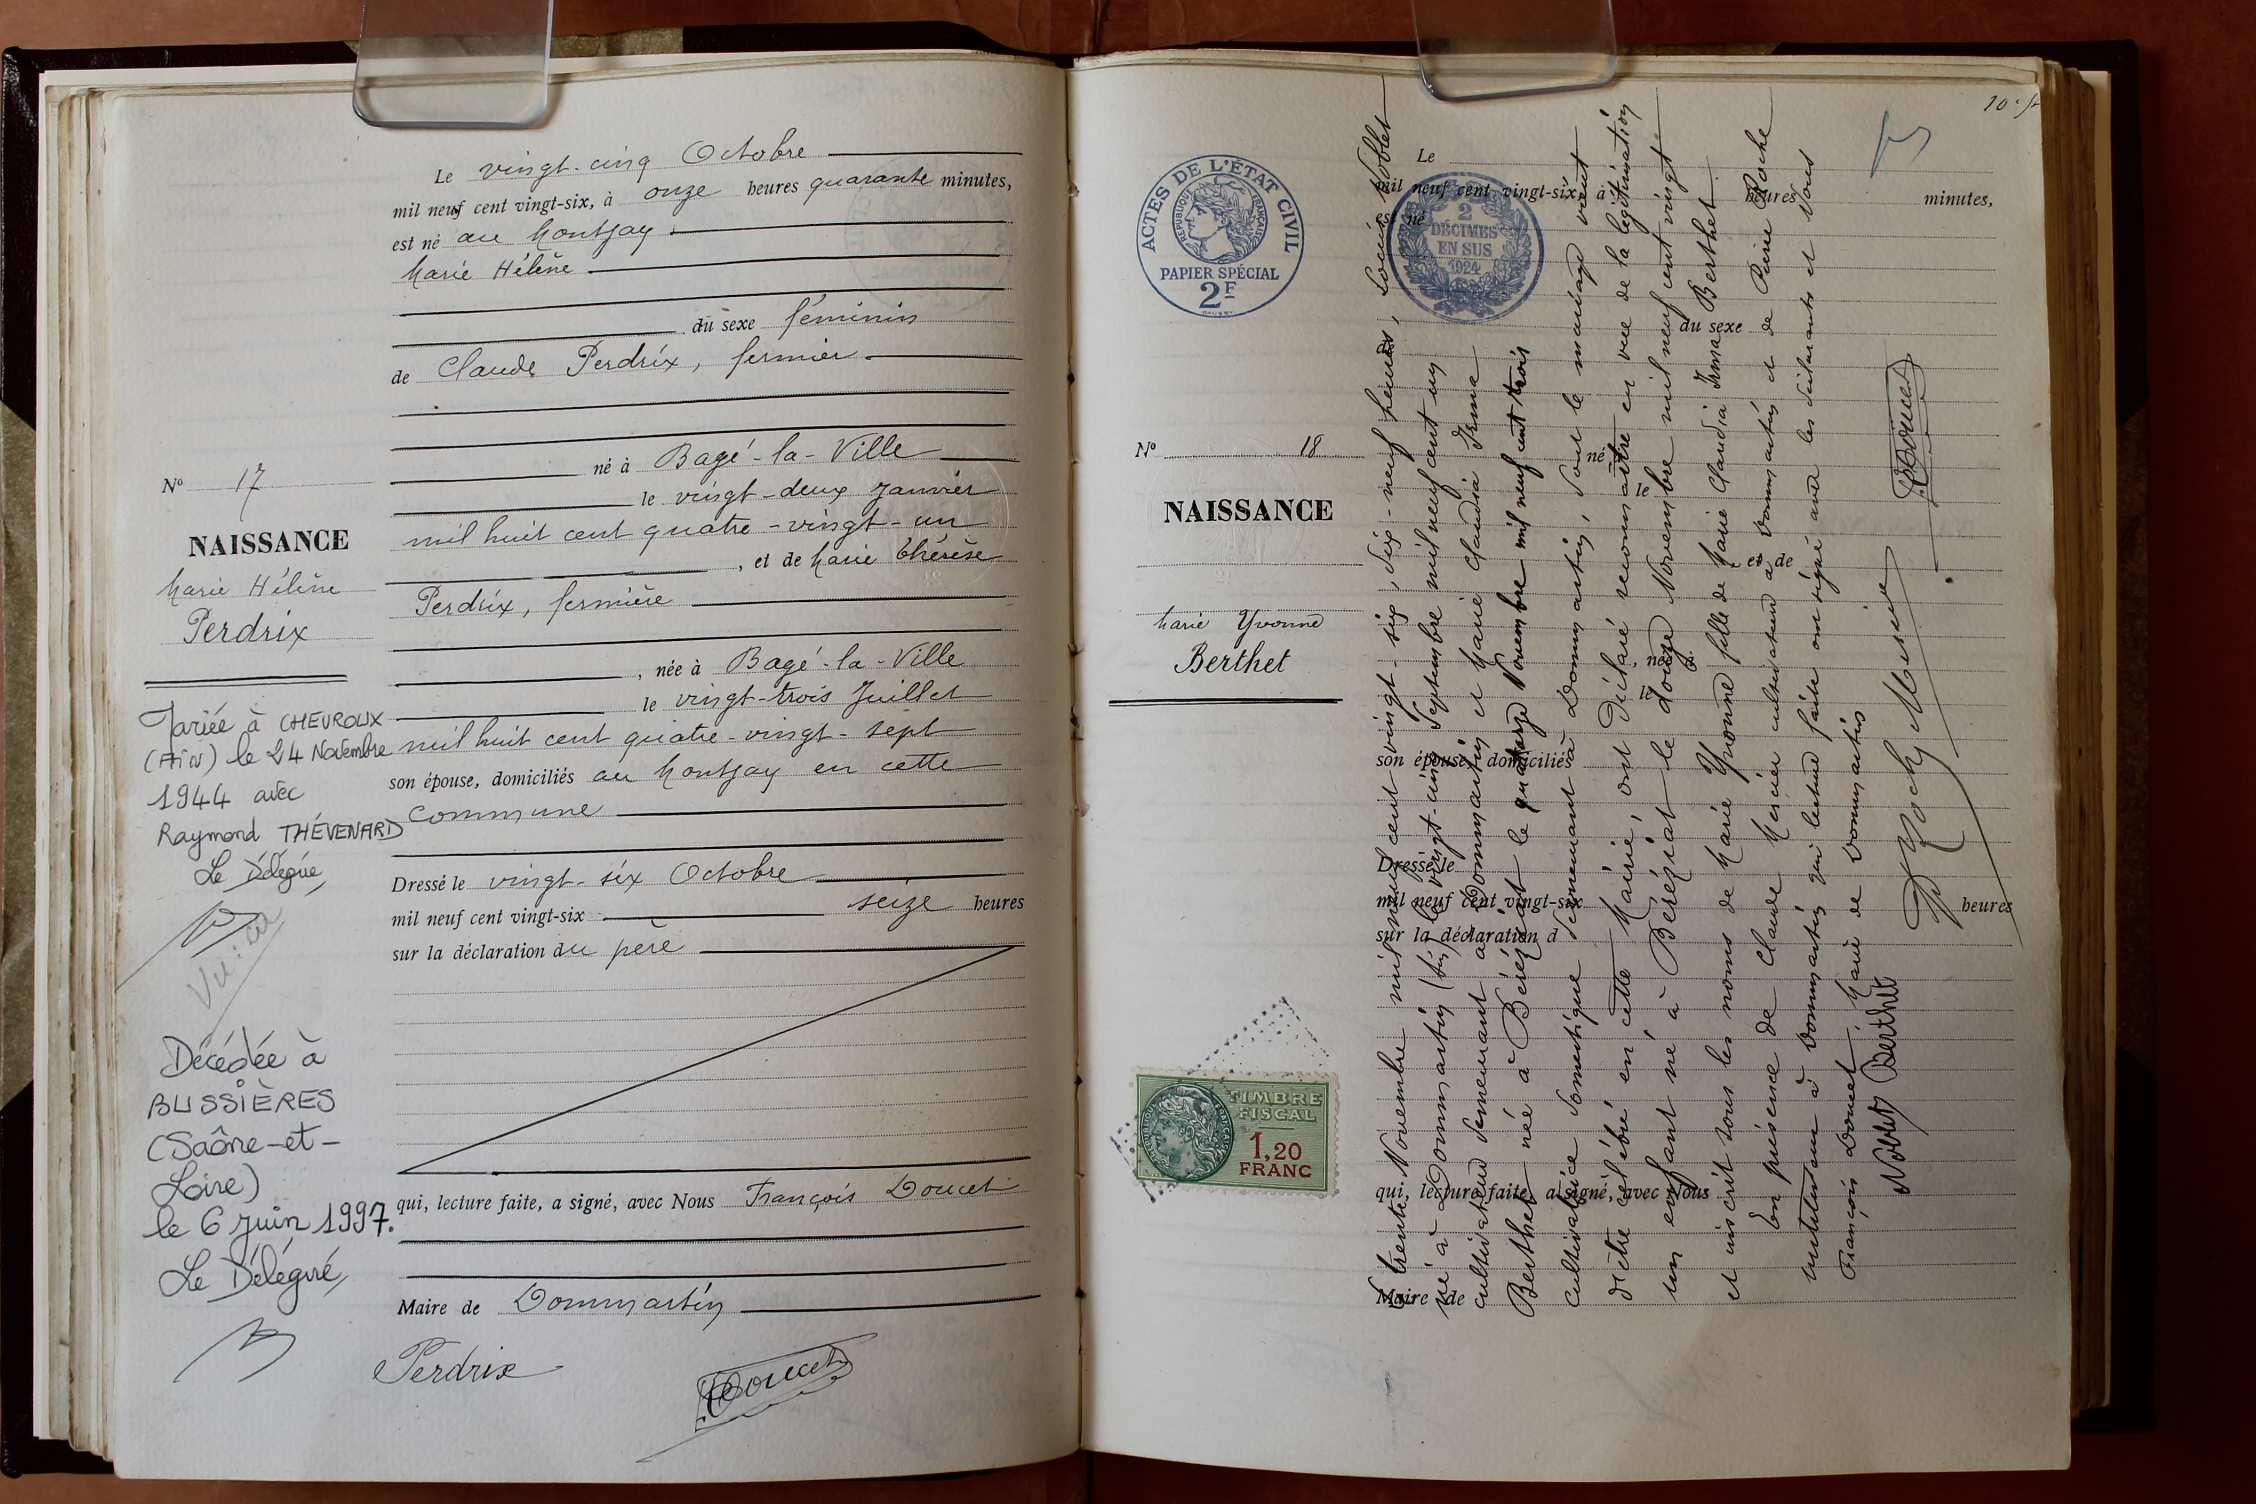 Le vingt-cinq Octobre
mil neuf cent vingt-six, à onze heures quarante minutes,
est né au Montjay
Marie Hélène
du sexe féminin
de Claude Perdrix, fermier
né à Bagé-la-Ville
le vingt-deux Janvier
mil huit cent quatre-vingt-un
, et de Marie Thérèse
Perdrix, fermière
, née à Bagé-la-Ville
le vingt-trois Juillet
mil huit cent quatre-vingt-sept
son épouse, domiciliés au Montjay en cette
commune
Dressé le vingt-six Octobre
mil neuf cent vingt-six seize heures
sur la déclaration du père
qui, lecture faite, a signé, avec Nous François Doucet
Maire de Dommartin
Perdrix
Doucet
No 17
NAISSANCE
Marie Hélène
Perdrix
Mariée à CHEVROUX
(AIN) le 24 Novembre
1944 avec
Raymond THÉVENARD
Le Délégué,
Décédée à
BUSSIÈRES
(Saône-et-
Loire)
le 6 Juin 1997.
Le Délégué,
ACTES DE L'ÉTAT CIVIL
RÉPUBLIQUE FRANÇAISE
PAPIER SPÉCIAL
2F
2
DÉCIMES
EN SUS
1924
No 18
NAISSANCE
Marie Yvonne
Berthet
TIMBRE
FISCAL
1,20
FRANC
Le
mil neuf cent vingt-six, à heures minutes,
est né
du sexe
de
né
le
et de
, née à
le
son épouse, domiciliés
Dressé le
mil neuf cent vingt-six heures
sur la déclaration d
qui, lecture faite, a signé, avec Nous
Maire de
Le trente Novembre mil neuf cent vingt-six, dix-neuf heures, Louis Noblet
né à Dommartin (Ain) le vingt-cinq Septembre mil neuf cent un
cultivateur demeurant à Dommartin et Marie Claudia Irma
Berthet née à Béréziat le quatorze Novembre mil neuf cent trois
cultivatrice domestique demeurant à Dommartin, dont le mariage vient
d'être célébré en cette Mairie, ont déclaré reconnaitre en vue de la légitimation
un enfant né à Béréziat le douze Novembre mil neuf cent vingt
et inscrit sous les noms de Marie Yvonne fille de Marie Claudia Irma Berthet
En présence de Claude Mercier cultivateur à Dommartin et de Pierre Roche
instituteur à Dommartin qui lecture faite ont signé avec les déclarants et Nous
François Doucet Maire de Dommartin
Noblet Berthet
Doucet